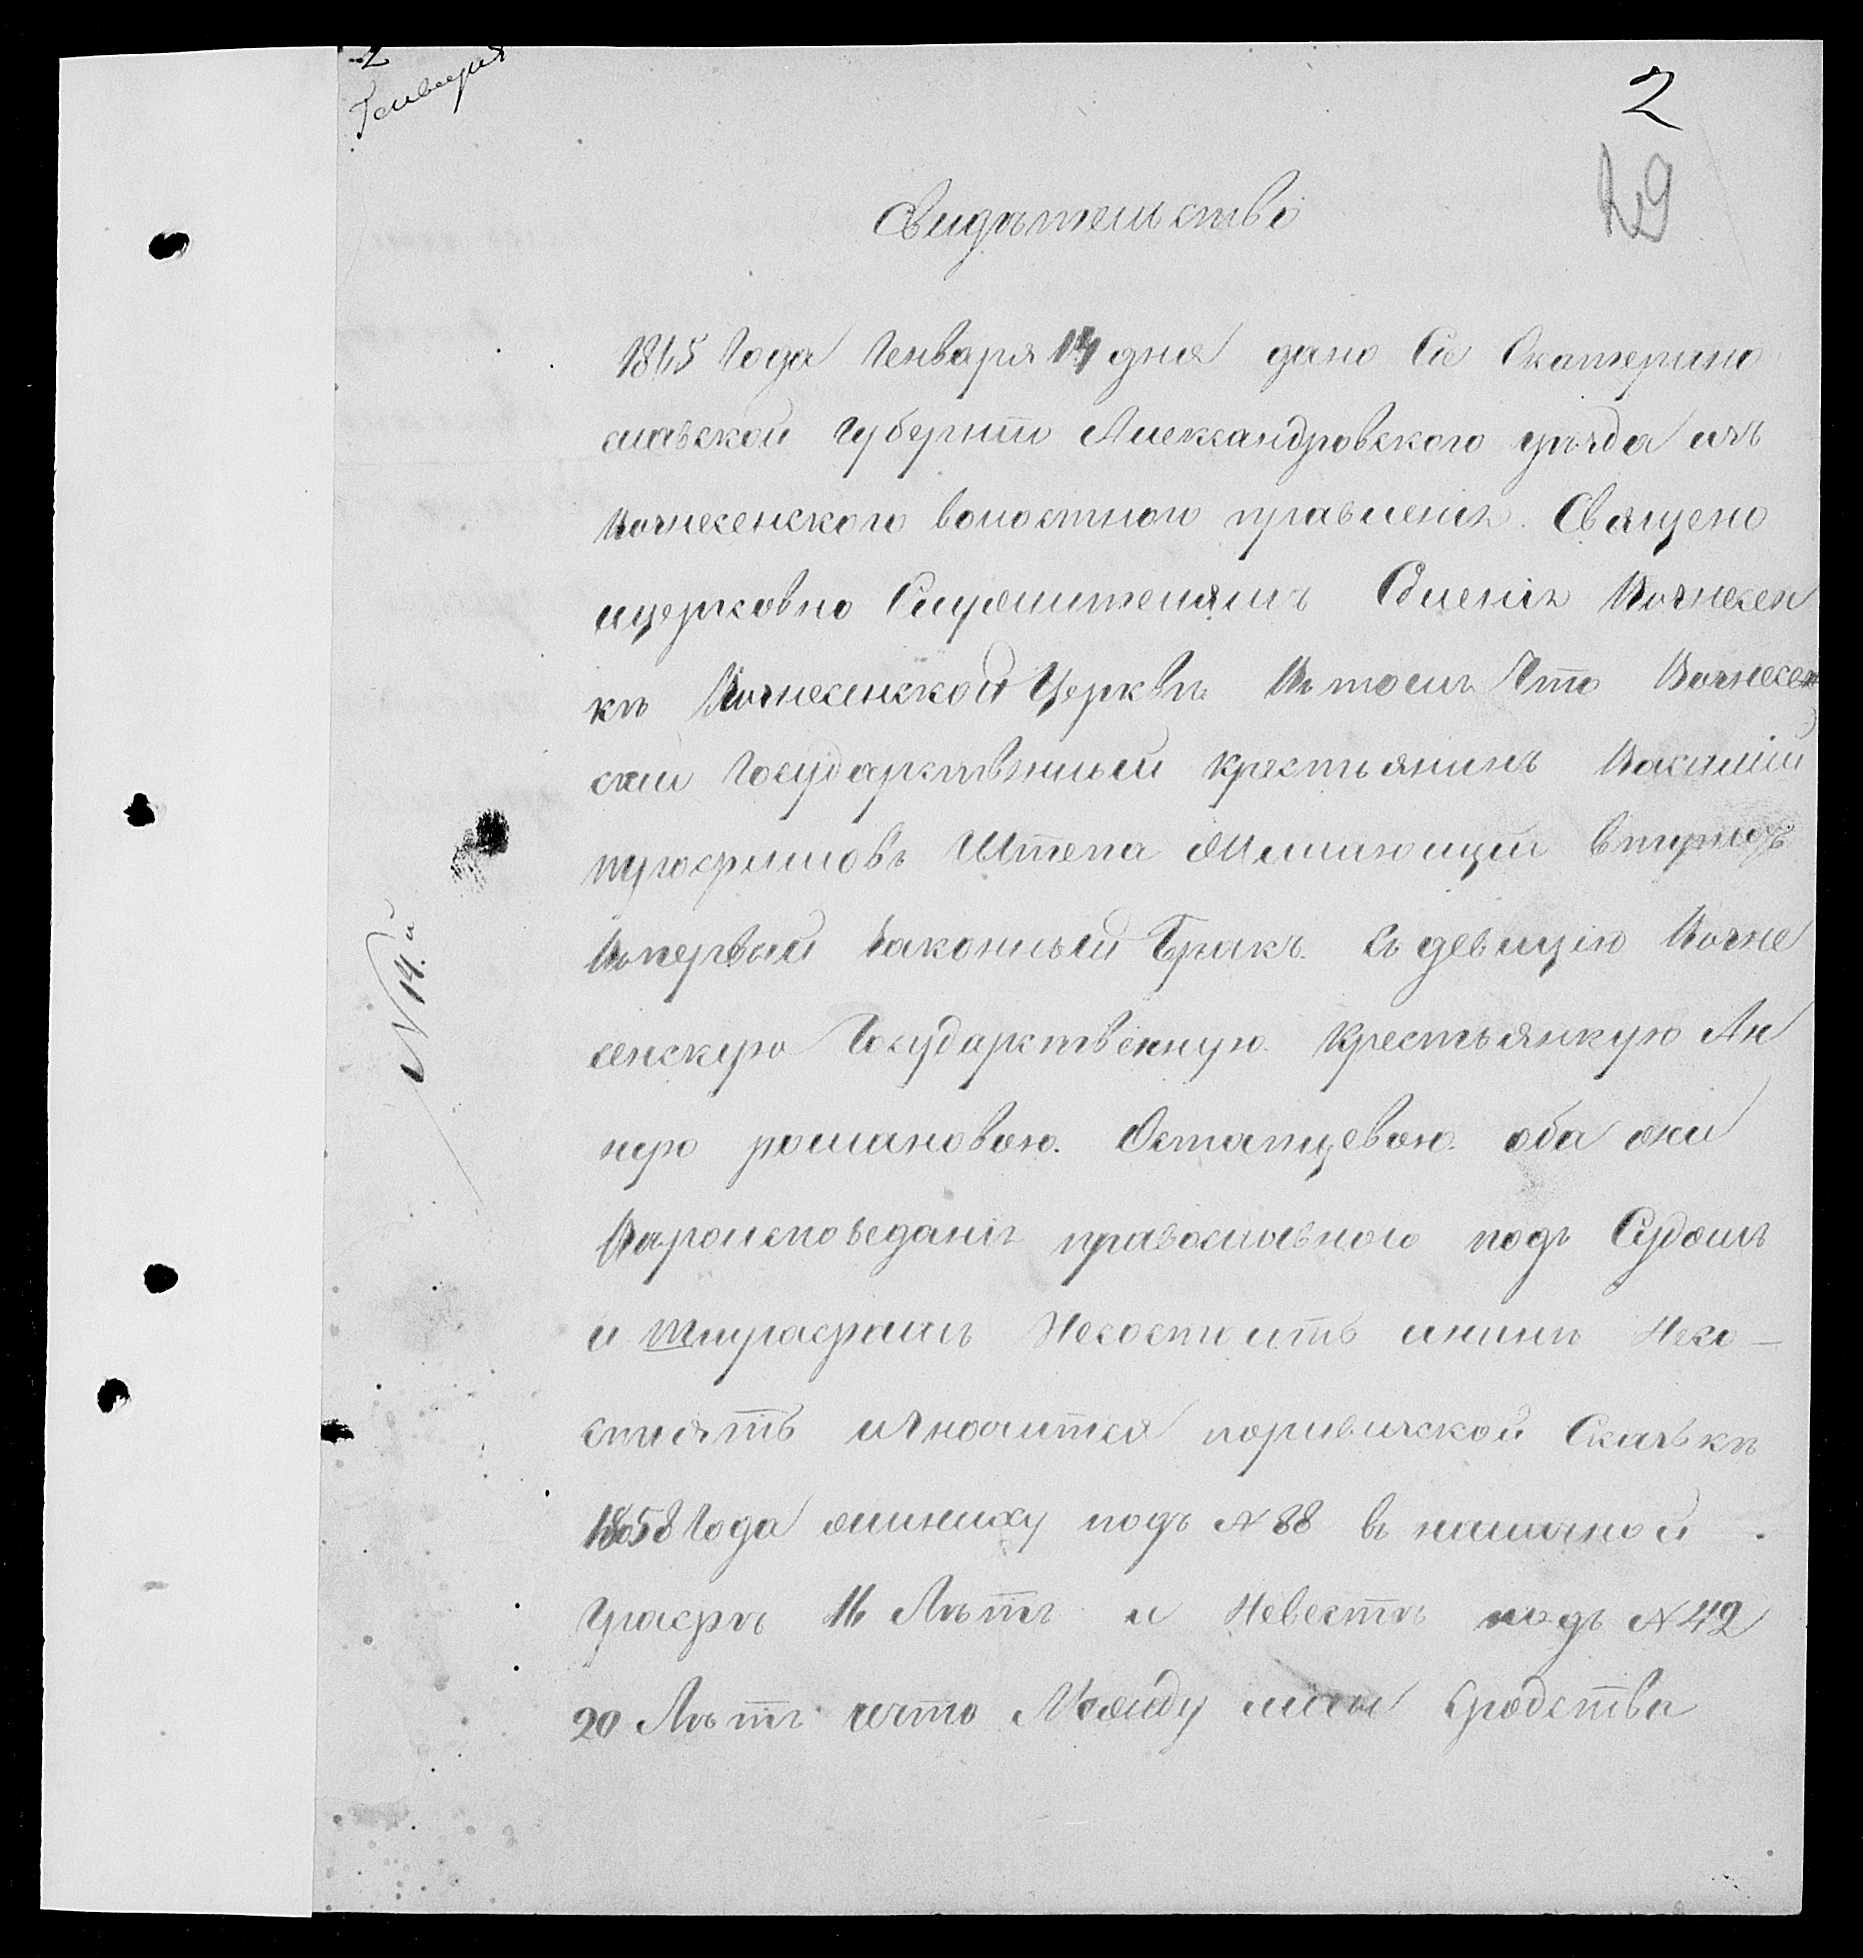 2
Генваря
2
29
Свидѣтельство
1865 Года Генваря 14 дня дано Сіе Екатерино
славской губерніи Александровского уѣзда изъ
Вознесенского волостного правленія. Священо
ицерковно Служителямъ Селенія Вознесен
къ Вознесенской Церквѣ Въ томъ Что Вознесен
скій Государственный крестьянинъ Василій
трофимовъ Штепа Желающій
Впервый Законный Бракъ съ девицію Возне
сенскую Государственную крестьянкую Ан
ную романовою. Остапцевою. оба они
Вароисповеданія православного подъ Судомъ
и штрафамъ Несостоитъ инынѣ Несо-
стоятъ износится поривизской Сказькѣ
1858 Года жениху подъ N 88 в наличной
графѣ 16 Лѣтъ и Невестѣ подъ N 42
20 Лѣтъ что Между ими Сродства
N 14.й